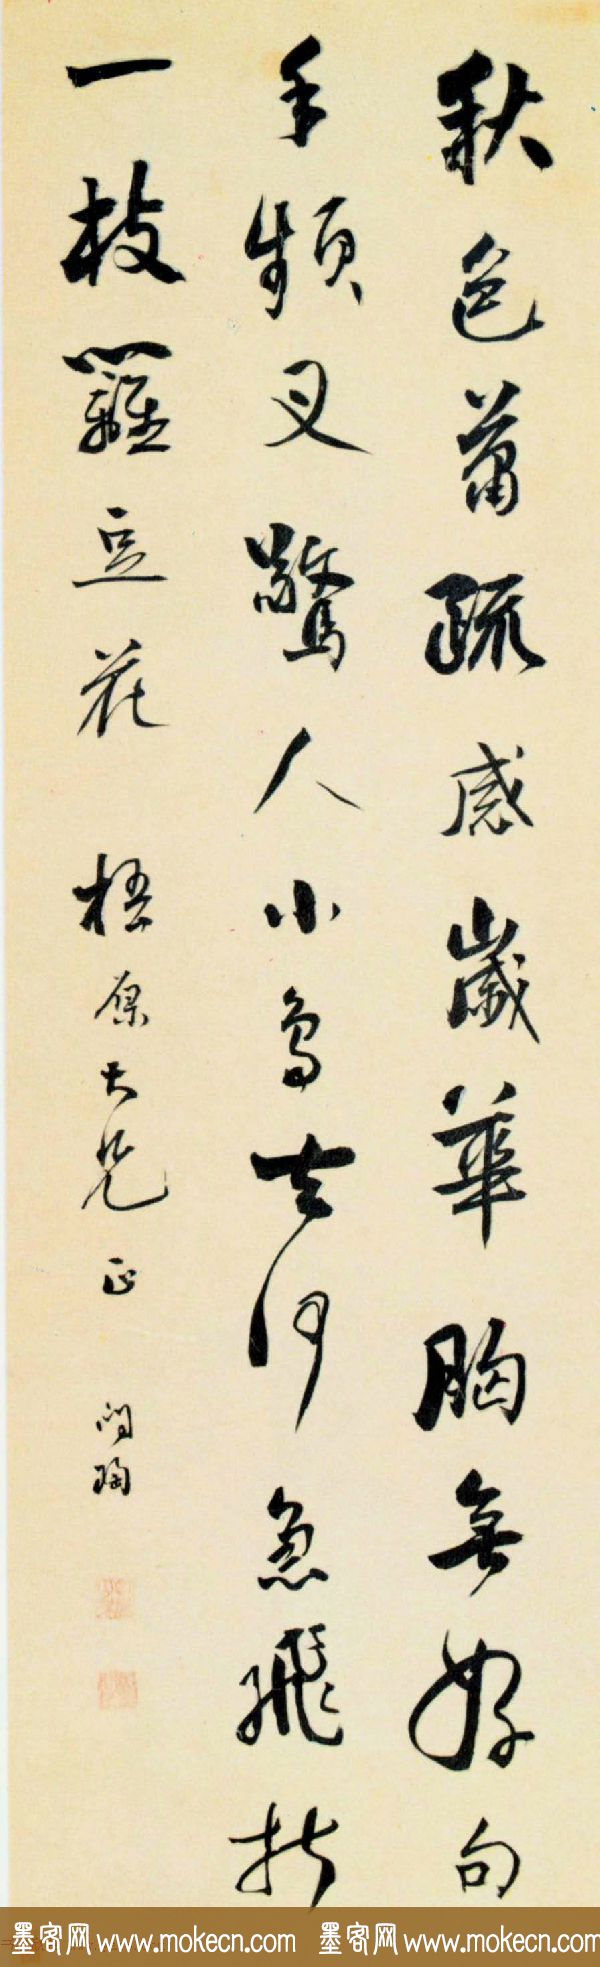 秋色蕭疏感歲華胸無好句
手頻叉驚人小鳥去何急飛折
一枝籬豆花 梧原大兄正 問陶
墨客网www.mokecn.com 墨客网www.mokecn.com